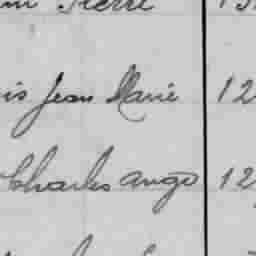 Pierre 13
is Jean Marie 12
Charles Ango 12